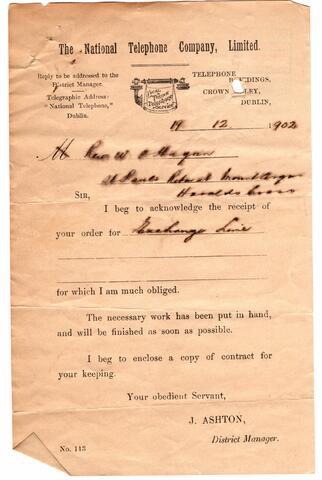 The National Telephone Company, Limited.
Reply to be addressed to the
District Manager.
Telegraphic Address:
"National Telephone,"
Dublin.
Local
Telephone
Service
TELEPHONE
CROWN
DUBLIN,
19 12 1902
Rev W O Hagan
St Pauls Retreat Mount Argus
Harolds Cross
SIR,
I beg to acknowledge the receipt of
your order for Exchange Line
for which I am much obliged.
The necessary work has been put in hand,
and will be finished as soon as possible.
I beg to enclose a copy of contract for
your keeping.
Your obedient Servant,
J. ASHTON,
District Manager.
No. 113